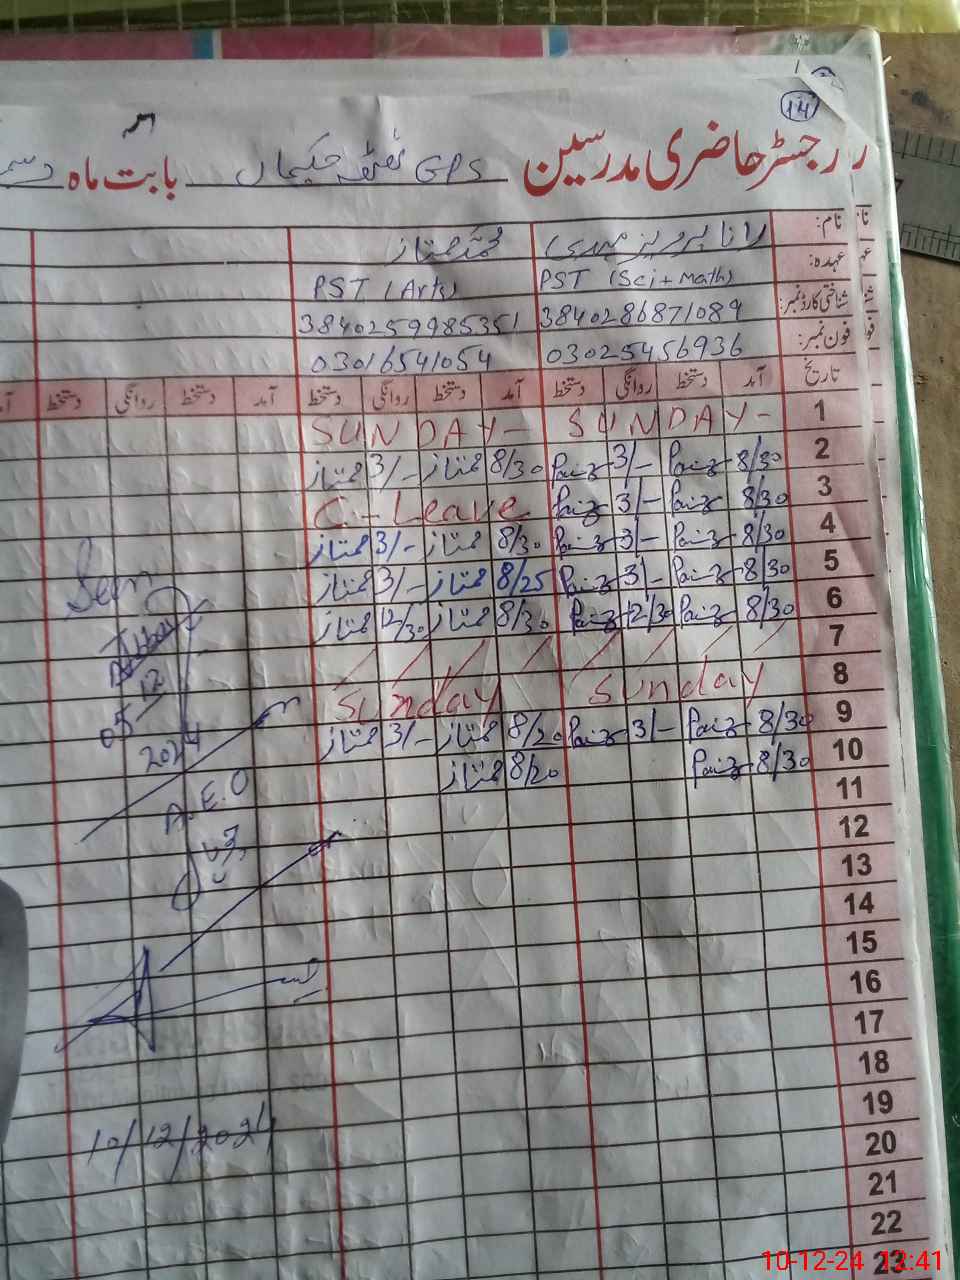 14
رجسٹر حاضری مدرسین GPS ٹھٹھہ حکیماں بابت ماہ
نام: رانا پرویز مہدی محمد ممتاز
عہدہ: PST (Sci + Math) PST (Arts)
شناختی کارڈ نمبر: 3840286871089 3840259985351
فون نمبر: 03025456936 03016541054
تاریخ آمد دستخط روانگی دستخط آمد دستخط روانگی دستخط آمد دستخط روانگی دستخط
1 SUNDAY - SUNDAY -
2 8/30 3/- 8/30 ممتاز 3/- ممتاز
3 8/30 3/- C-Leave
4 8/30 3/- 8/30 ممتاز 3/- ممتاز
5 8/30 3/- 8/25 ممتاز 3/- ممتاز
6 8/30 12/30 8/30 ممتاز 12/30 ممتاز
7
8 Sunday Sunday
9 8/30 3/- 8/20 ممتاز 3/- ممتاز
10 8/30 8/20 ممتاز
11
12
13
14
15
16
17
18
19
20
21
22
23
Seen
05-12
2024
A.E.O
10/12/2024
10-12-24 12:41